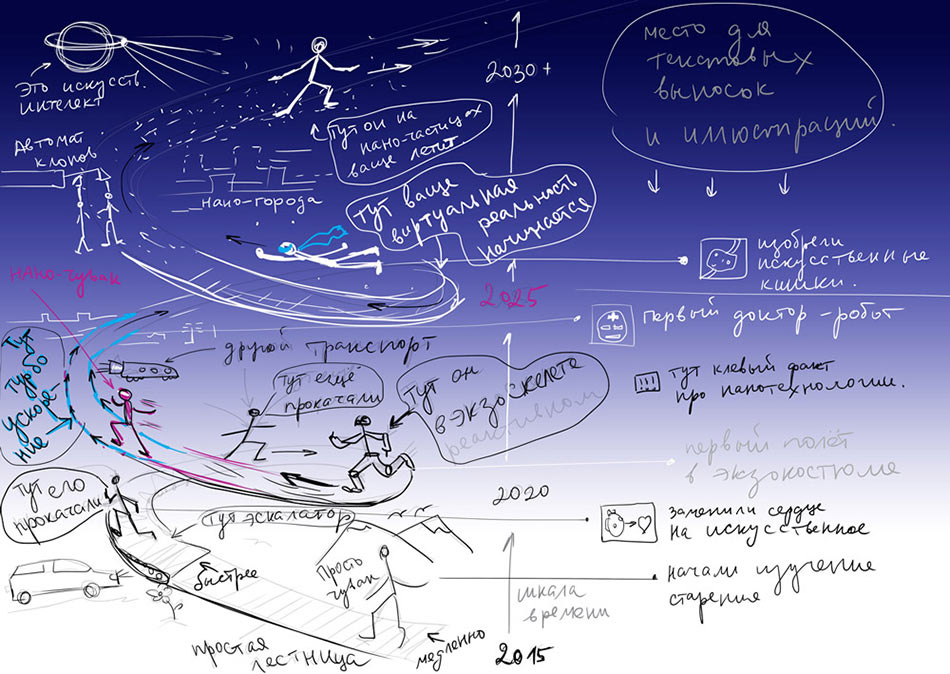 2030+
место для
текстовых
выносок
и иллюстраций.
Это искусств.
интелект
Автомат
клонов
тут он на
нано-частицах
ваще летит
нано-города
тут ваще
виртуальная
реальность
начинается
изобрели
искусственные
кишки.
нано-чувак
2025
первый доктор-робот
тут
турбо
ускоре-
ние
другой транспорт
тут ещё
прокачали
тут он
в экзоскелете
реактивном
тут клевый факт
про нанотехнологии.
первый полёт
в экзокостюме
2020
тут его
прокачали
тут эскалатор
заменили сердце
на искусственное
быстрее
просто
чувак
начали изучение
старения
шкала
времени
простая
лестница
медленно
2015